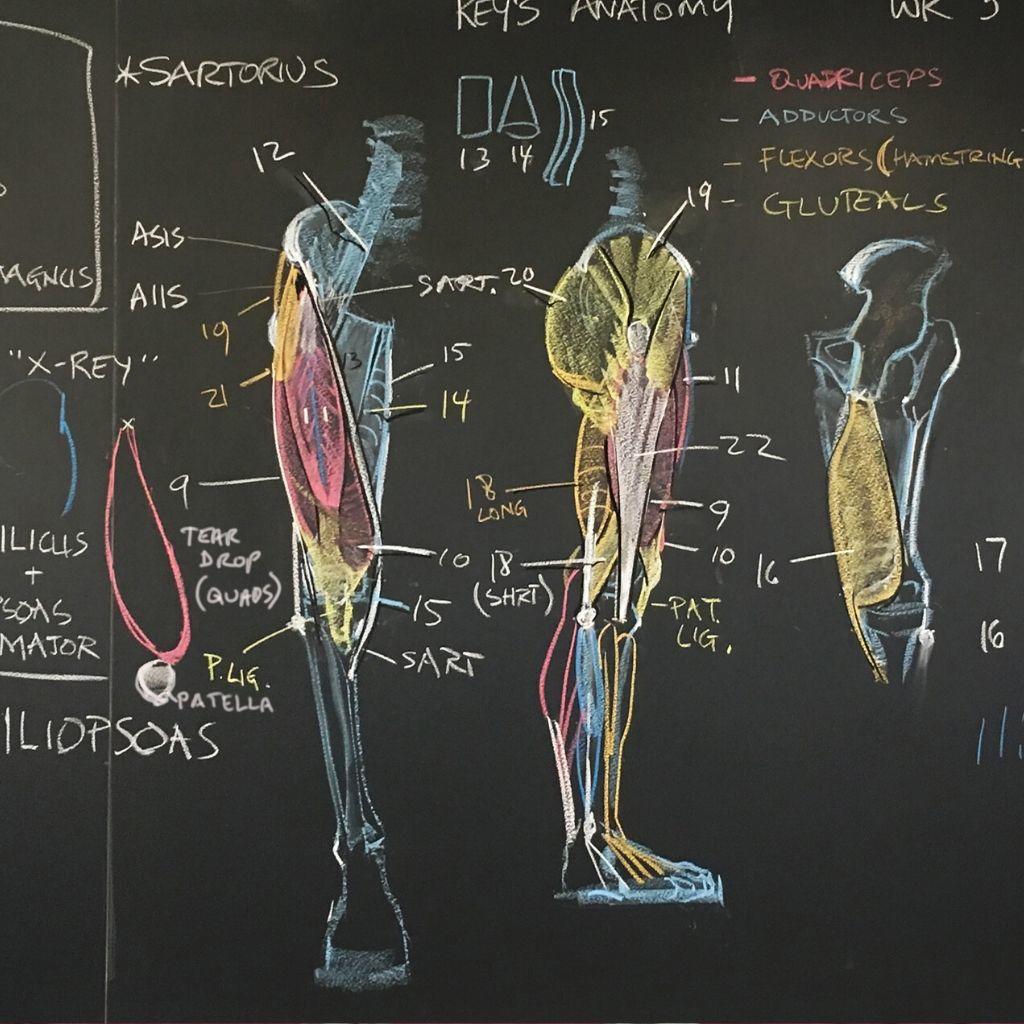 KEY'S ANATOMY
WK 5
*SARTORIUS
- QUADRICEPS
- ADDUCTORS
- FLEXORS (HAMSTRING
- GLUTEALS
15
13 14
12
19
ASIS
AIIS
SART. 20
MAGNUS
19
"X-REY"
13
15
11
21
14
1 1
22
9
18
LONG
9
TEAR
DROP
(QUADS)
10
18
(SHRT)
10
16
17
ILICUS
+
PSOAS
MAJOR
15
PAT.
LIG.
16
SART
P.LIG.
PATELLA
ILIOPSOAS